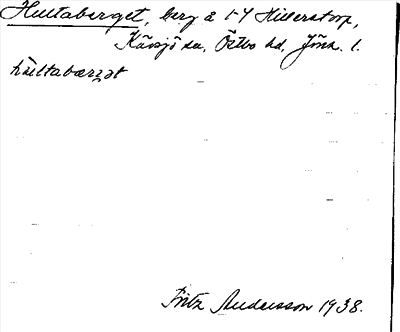 Hultaberget, berg å 1-4 Hillerstorp,
Kävsjö sn, Östbo hd, Jönk. l.
hùltabærjət
Fritz Andersson 1938.